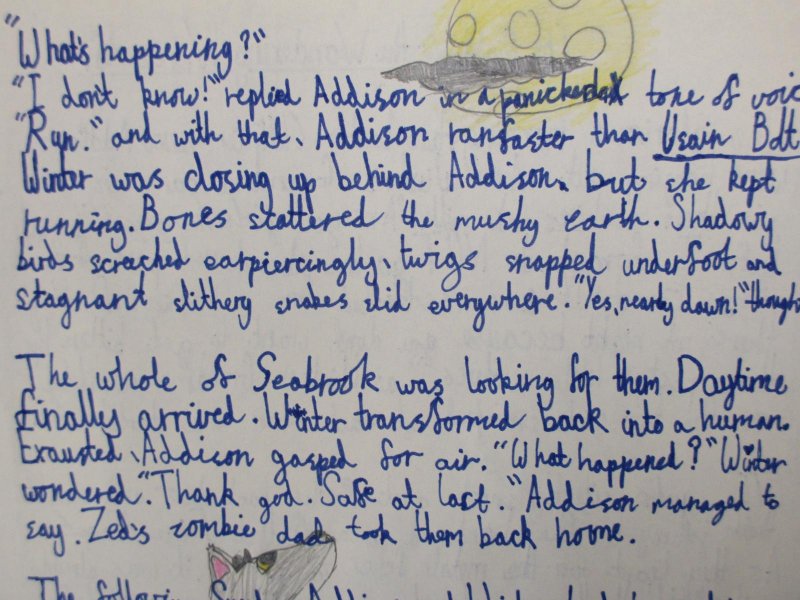 "What's happening?"
"I don't know!" replied Addison in a panicked tone of voic
"Run." and with that, Addison ran faster than Usain Bolt
Winter was closing up behind Addison, but she kept
running. Bones scattered the mushy earth. Shadowy
birds screached earpiercingly, twigs snapped underfoot and
stagnant slithery snakes slid everywhere. "Yes, nearly dawn!" though
The whole of Seabrook was looking for them. Daytime
finally arrived. Winter transformed back into a human.
Exausted, Addison gasped for air. "What happened?" Winter
wondered. "Thank god. Safe at last." Addison managed to
say. Zed's zombie dad took them back home.
The following